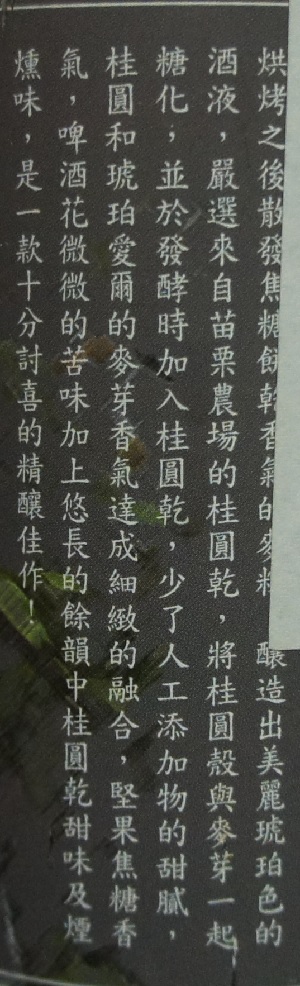 烘烤之後散發焦糖餅乾香氣的麥料 釀造出美麗琥珀色的
酒液，嚴選來自苗栗農場的桂圓乾，將桂圓殼與麥芽一起
糖化；並於發酵時加入桂圓乾，少了人工添加物的甜膩，
桂圓和琥珀愛爾的麥芽香氣達成細緻的融合，堅果焦糖香
氣，啤酒花微微的苦味加上悠長的餘韻中桂圓乾甜味及煙
燻味，是一款十分討喜的精釀佳作！